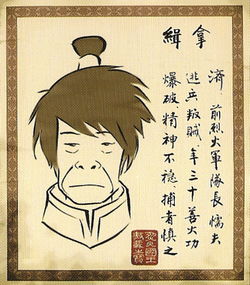 緝拿
濟 前烈火軍隊長懦夫
逃兵叛賊年三十善火功
爆破精神不穩捕者慎之